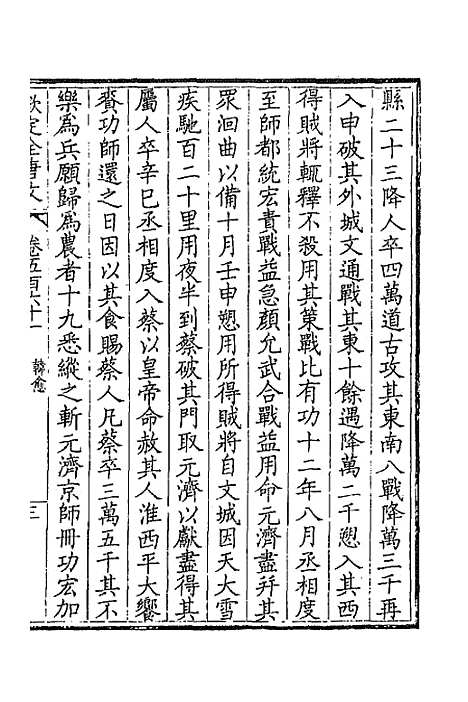 縣二十三降人卒四萬道古攻其東南八戰降萬三千再
入申破其外城文通戰其東十餘遇降萬二千愬入其西
得賊將輒釋不殺用其策戰比有功十二年八月丞相度
至師都統宏責戰益急顏允武合戰益用命元濟盡幷其
眾洄曲以備十月壬申愬用所得賊將自文城因天大雪
疾馳百二十里用夜半到蔡破其門取元濟以獻盡得其
屬人卒辛巳丞相度入蔡以皇帝命赦其人淮西平大饗
賚功師還之日因以其食賜蔡人凡蔡卒三萬五千其不
樂為兵願歸為農者十九悉縱之斬元濟京師冊功宏加
欽定全唐文 卷五百六十一 韓愈 三